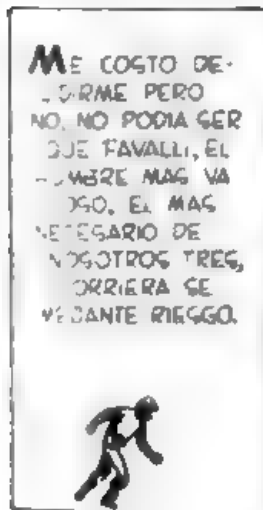 ME COSTO DE-
CIDIRME PERO
NO, NO PODIA SER
QUE FAVALLI, EL
HOMBRE MAS VA
LIOSO, EL MAS
NECESARIO DE
NOSOTROS TRES,
CORRIERA SE
MEJANTE RIESGO.